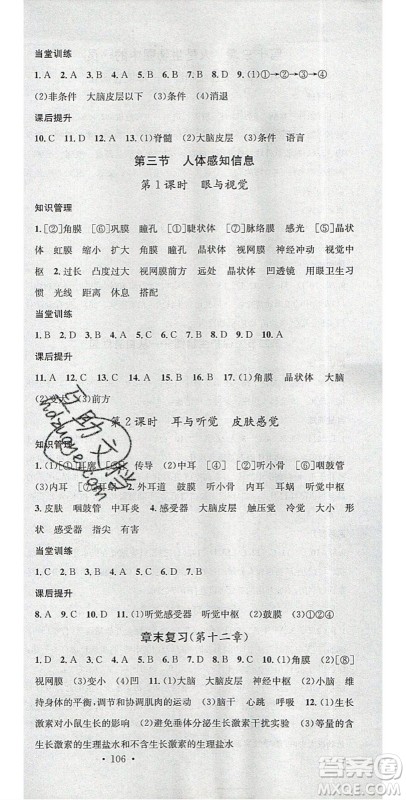 当堂训练
1. A 2. A 3. A 4. A 5. B 6. D 7. B 8. C 9. (1)①→②→③→④
(2)非条件 大脑皮层以下 (3)条件 (4)消退
课后提升
10. C 11. D 12. A 13. (1)脊髓 (2)大脑皮层 (3)条件 语言
第三节 人体感知信息
第1课时 眼与视觉
知识管理
1. [②]角膜 [⑥]巩膜 瞳孔 [⑤]睫状体 [⑦]脉络膜 感光 [④]晶状
体 虹膜 缩小 扩大 角膜 瞳孔 晶状体 视网膜 神经冲动 视觉
中枢 2. 过长 凸度过大 视网膜前方 远处 晶状体 凹透镜 用眼卫生习
惯 光线 距离 休息 搭配
当堂训练
1. B 2. D 3. A 4. C 5. B 6. D 7. B 8. D 9. D 10. A
课后提升
11. A 12. C 13. B 14. A 15. A 16. D 17. (1)角膜 晶状体 大脑
(2)变大 (3)前方
第2课时 耳与听觉 皮肤感觉
知识管理
1. (1)[①]耳廓 传导 [④]鼓膜 [⑤]听小骨 [⑥]咽鼓管
(2)中耳 (3)内耳 2. 外耳道 鼓膜 听小骨 内耳 耳蜗 听觉中枢
3. 皮肤 咽鼓管 中耳炎 4. 大脑皮层 触压觉 冷觉 大小 形
状 感受器 指尖 有害
当堂训练
1. C 2. B 3. B 4. B 5. D 6. B 7. D
课后提升
8. A 9. C 10. A 11. (1)听觉感受器 听觉中枢 (2)鼓膜 (3)①②④
章末复习(第十二章)
1. D 2. A 3. A 4. D 5. B 6. D 7. D 8. B 9. C 10. (1)角膜 (2)[⑧]
视网膜 (3)变小 (4)凹 11. (1)感受器 听觉中枢 (2)小脑 维
持身体的平衡,调节和协调肌肉的运动 脑干 心跳 呼吸 12. (1)生长
激素对小鼠生长的影响 (2)避免垂体分泌生长激素干扰实验 (3)等量的含
生长激素的生理盐水和不含生长激素的生理盐水
• 106 •
互助文档
hdzuoye.com
答案圈
MXQE.COM